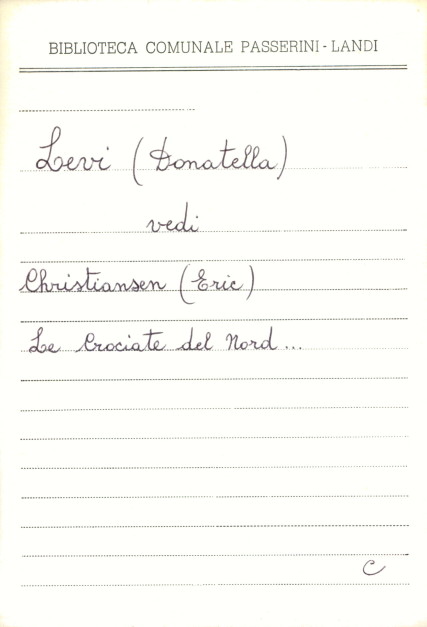 BIBLIOTECA COMUNALE PASSERINI - LANDI
Levi (Donatella)
vedi
Christiansen (Eric)
Le Crociate del Nord...
C